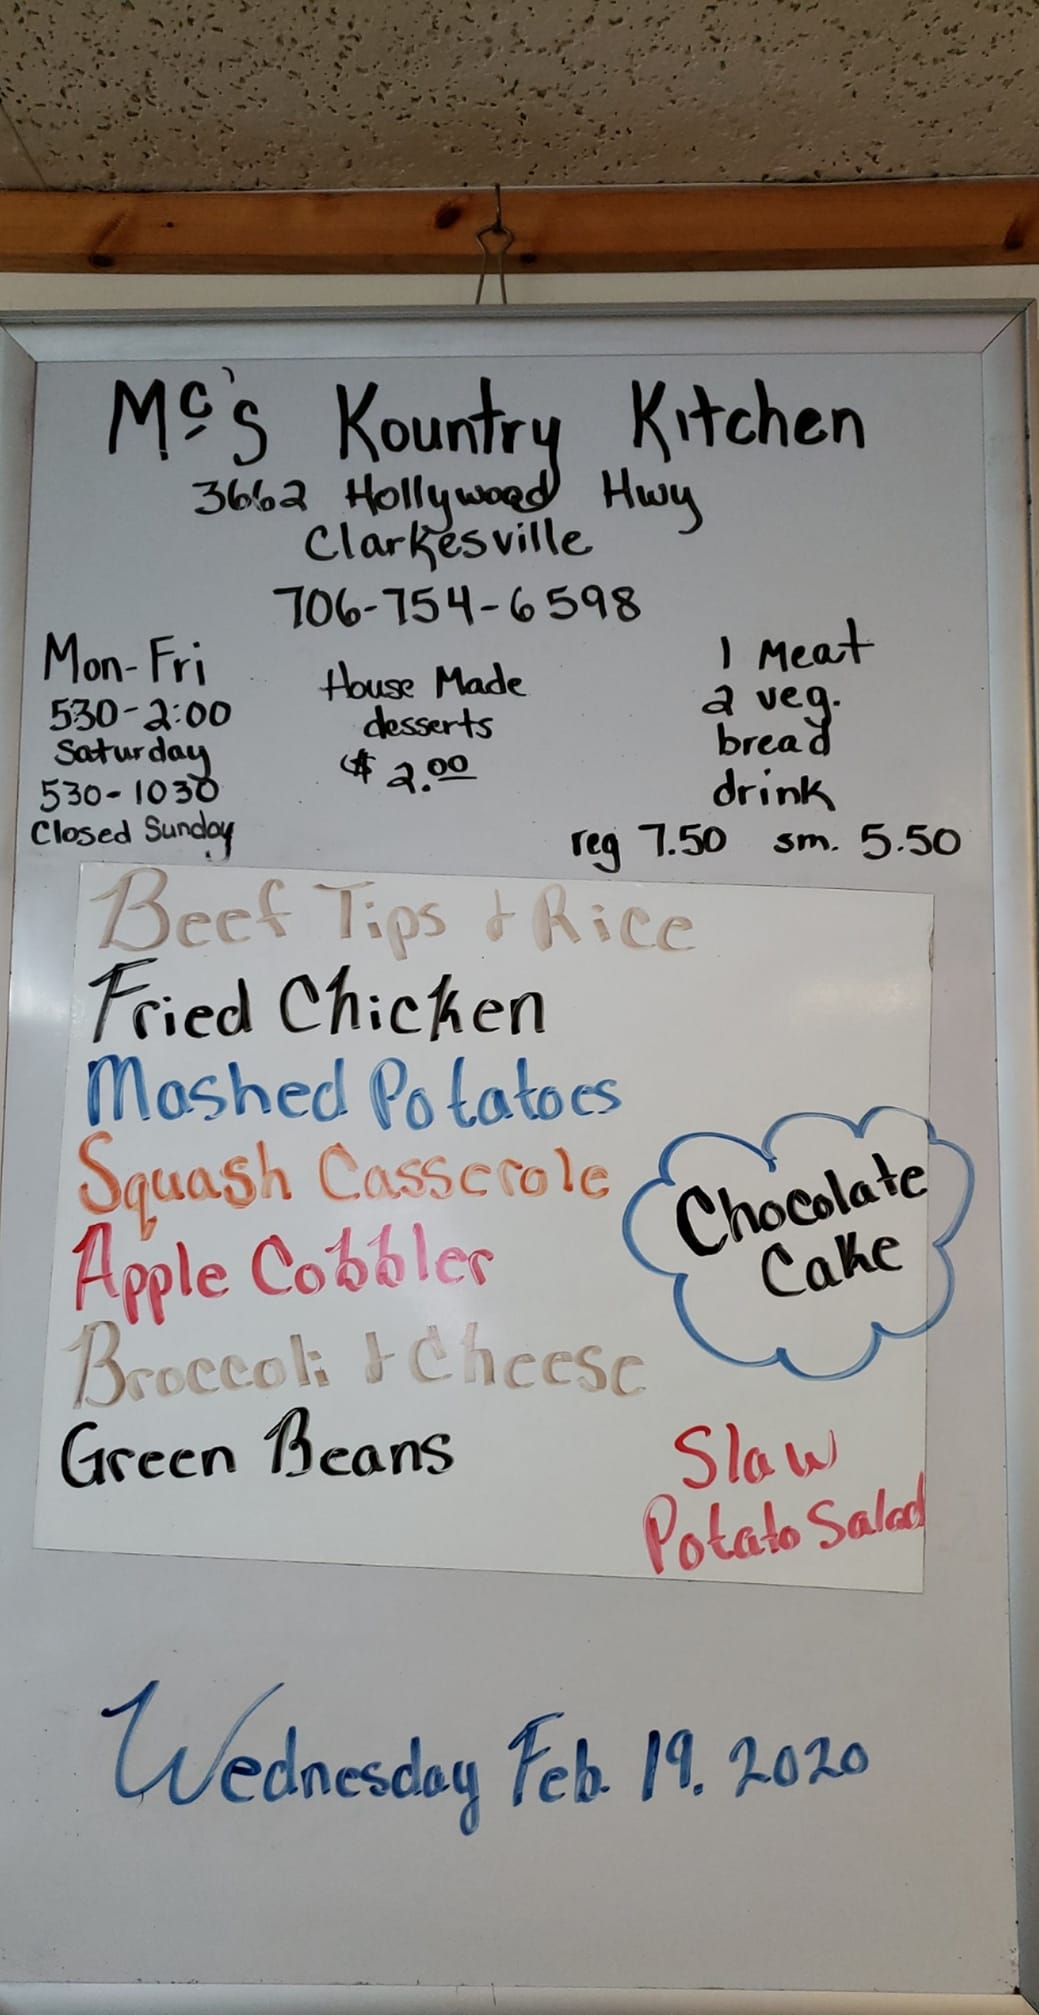 Mc's Kountry Kitchen
3662 Hollywood Hwy
Clarkesville
706-754-6598
Mon-Fri
530-2:00
Saturday
530-1030
Closed Sunday
House Made
desserts
$2.00
1 Meat
2 veg.
bread
drink
reg 7.50 sm. 5.50
Beef Tips & Rice
Fried Chicken
Mashed Potatoes
Squash Casserole
Apple Cobbler
Broccoli & Cheese
Green Beans
Chocolate
Cake
Slaw
Potato Salad
Wednesday Feb. 19. 2020